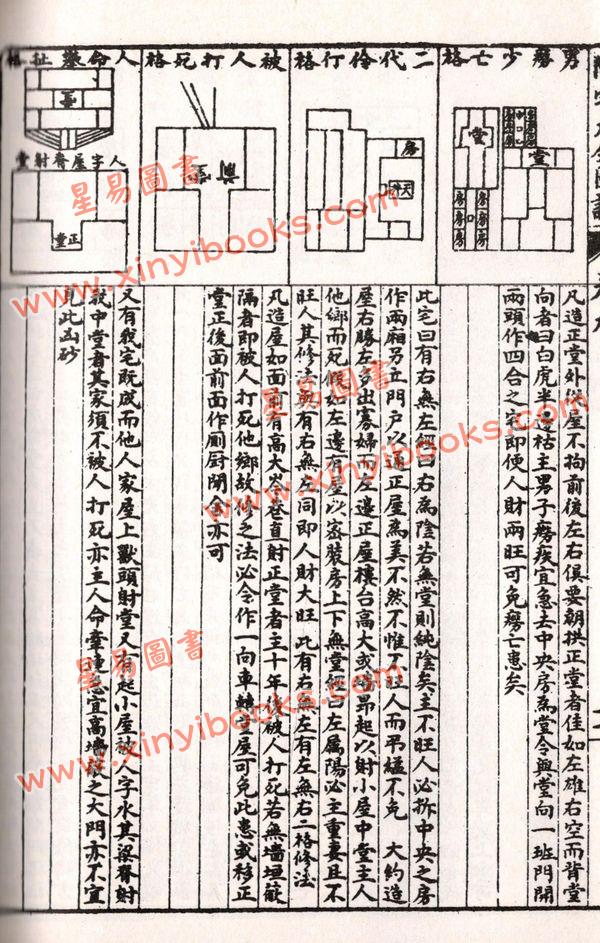 男癆少亡格
堂
堂
房
房
房
房
凡造正堂外從屋不拘前後左右俱要朝拱正堂者佳如左雄右空而背堂
向者曰白虎半邊枯主男子癆疾宜急去中央房為堂令與堂向一班門開
兩頭作四合之宅即使人財兩旺可免癆亡患矣
二代伶仃格
房
天井
此宅曰有右無左經曰右為陰若無堂則純陰矣主不旺人必拆中央之房
作兩廂另立門戶以通正屋為美不然不惟不旺人而吊縊不免 大約造
屋右勝左多出寡婦而左邊正屋樓台高大或昂起以射小屋中堂主人
他鄉而死假如左邊有屋以審裝房上下無堂經曰左属陽必主重妻且不
旺人其修法與有右無左同即人財大旺 此有右無左有左無右二格修法
被人打死格
凡造屋如面前有高大巷直射正堂者主十年後被人打死若無墻垣蔽
隔者即被人打死他鄉故修之法必令作一向車轉堂屋可免此患或移正
堂正後面前面作廁厨閉舍亦可
人命牽扯格
人字屋脊射堂
正堂
又有我宅既成而他人家屋上獸頭射堂又有起小屋被人字水其梁脊射
我中堂者其家須不被人打死亦主人命牽連患宜高墻蔽之大門亦不宜
見此凶砂
星易圖書
www.xinyibooks.com
星易圖書
www.xinyibooks.com
星易圖書
www.xinyibooks.com